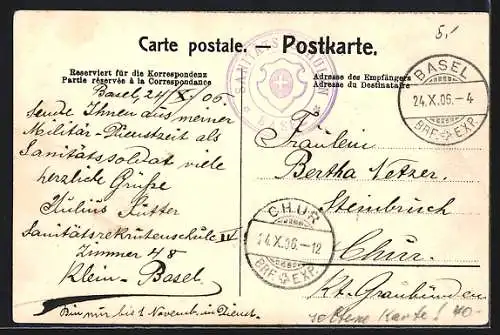 5.-
Carte postale. — Postkarte.
Reserviert für die Korrespondenz
Partie réservée à la Correspondance
Adresse des Empfängers
Adresse du Destinataire
SANITÄTS
BASEL
BASEL
24.X.06.-4
BRF. EXP.
Basel, 24/X/06.
Sende Ihnen aus meiner
Militär-Dienstzeit als
Sanitätssoldat viele
herzliche Grüße
Julius Sutter
Sanitätsrekrutenschule IV
Zimmer 48
Klein-Basel
Bin nur bis 1 Novemb. in Dienst.
Fräulein
Bertha Netzer.
Steinbruch
Chur.
Kt. Graubünden
CHUR
24.X.06.-12
BRF. EXP.
seltene Karte! 40-